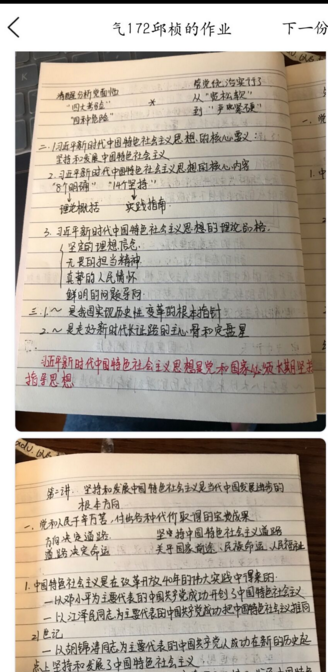 气172邱桢的作业
下一份
清醒分析党面临
管党统治党
"四大考验"
从"宽松软"
"四种危险"
*
到"严
二.1.习近平新时代中国特色社会主义思想的核心要义:
坚持和发展中国特色社会主义
2.习近平新时代中国特色社会主义思想的核心内容
"8个明确" "14个坚持"
理论概括 实践指南
3.习近平新时代中国特色社会主义思想的理论品格.
坚定的理想信念.
无畏的担当精神
真挚的人民情怀
鲜明的问题导向
三.1.~ 是我国实现历史性变革的根本指针
2.~ 是走好新时代长征路的主心骨和定盘星
习近平新时代中国特色社会主义思想是党和国家必须长期坚持
指导思想
第2讲. 坚持和发展中国特色社会主义是当代中国发展进步的
根本方向
一.党和人民千辛万苦,付出各种代价取得的宝贵成果
方向决定道路 坚定中国特色社会主义道路
道路决定命运 关乎国家前途、民族命运、人民福祉
1.中国特色社会主义是在改革开放40年的伟大实践中得来的
—以邓小平为主要代表的中国共产党成功开创了中国特色社会主义
—以江泽民同志为主要代表的中国共产党成功把中国特色社会主义推向
21世纪
—以胡锦涛同志为主要代表的中国共产党人成功在新的历史起
点上坚持和发展了中国特色社会主义